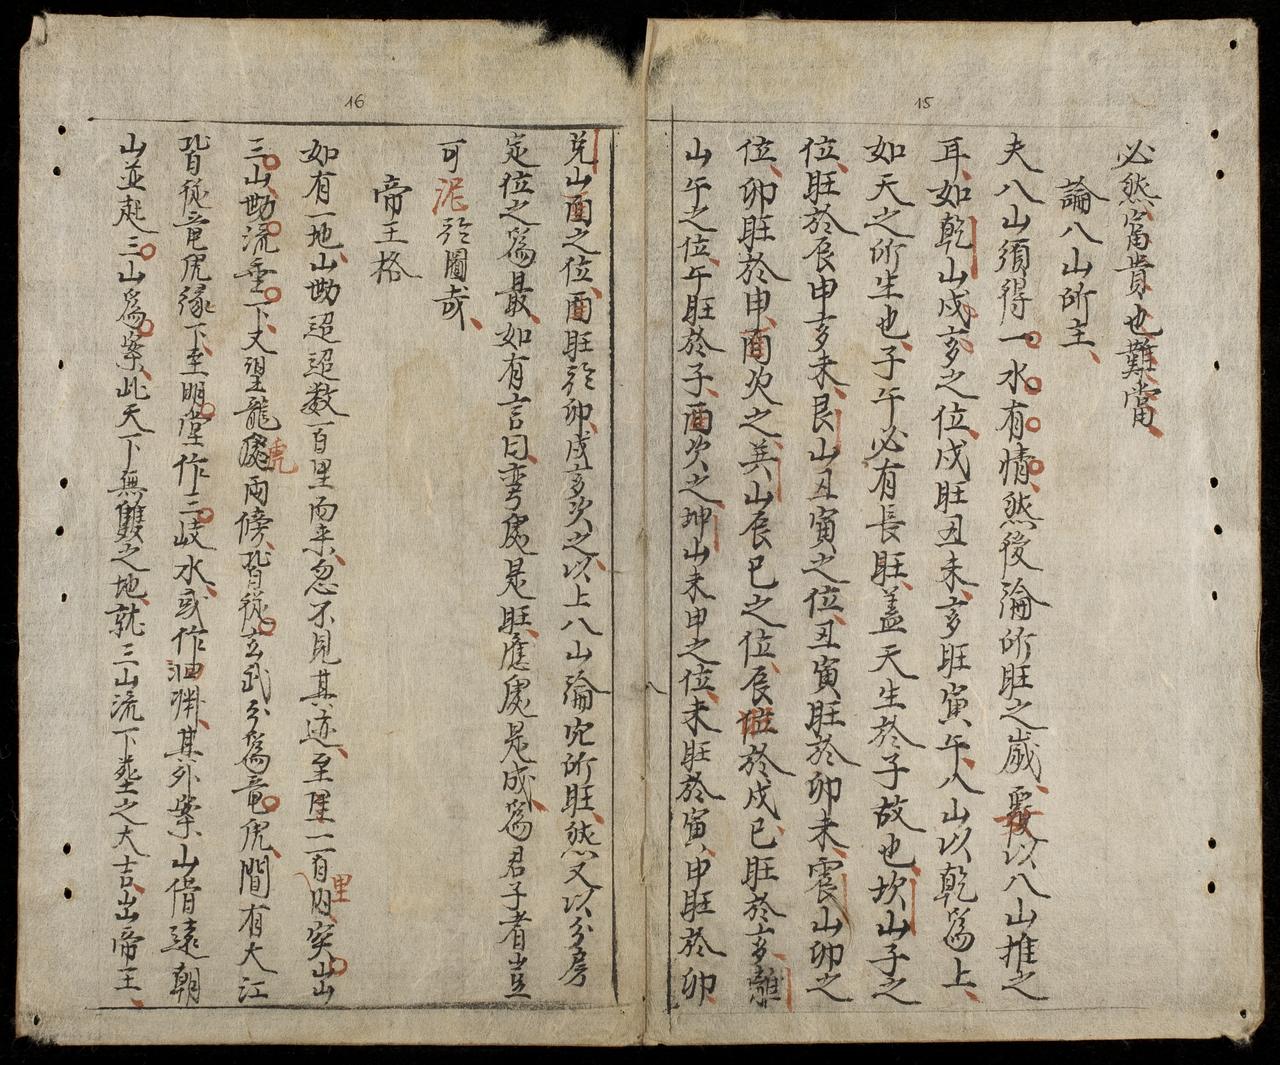 15
必然富貴也難當
論八山所主
夫八山須得一水有情然後論所旺之歲覆以八山推之
耳如乾山戌亥之位戌旺丑未亥旺寅午八山以乾爲上
如天之所生也子午必有長旺盖天生於子故也坎山子之
位旺於辰申亥未艮山丑寅之位丑寅旺於卯未震山卯之
位卯旺於申酉次之巽山辰巳之位辰旺於戌巳旺於亥離
山午之位午旺於子酉次之坤山未申之位未旺於寅申旺於卯
16
兌山酉之位酉旺於卯戌亥次之以上八山論究所旺然又以分房
定位之爲最如有言曰弯處是旺應處是成爲君子者豈
可泥於圖哉
帝王格
如有一地山勘迢迢数百里而来忽不見其迹至里一二百里内突山
三山勘流垂下又望龍處虎兩傍皆從玄武分爲竜虎間有大江
皆從竜虎缘下至明堂作三岐水或作洄渊其外案山借遠朝
山並起三山爲案此天下無雙之地就三山流下葬之大吉出帝王